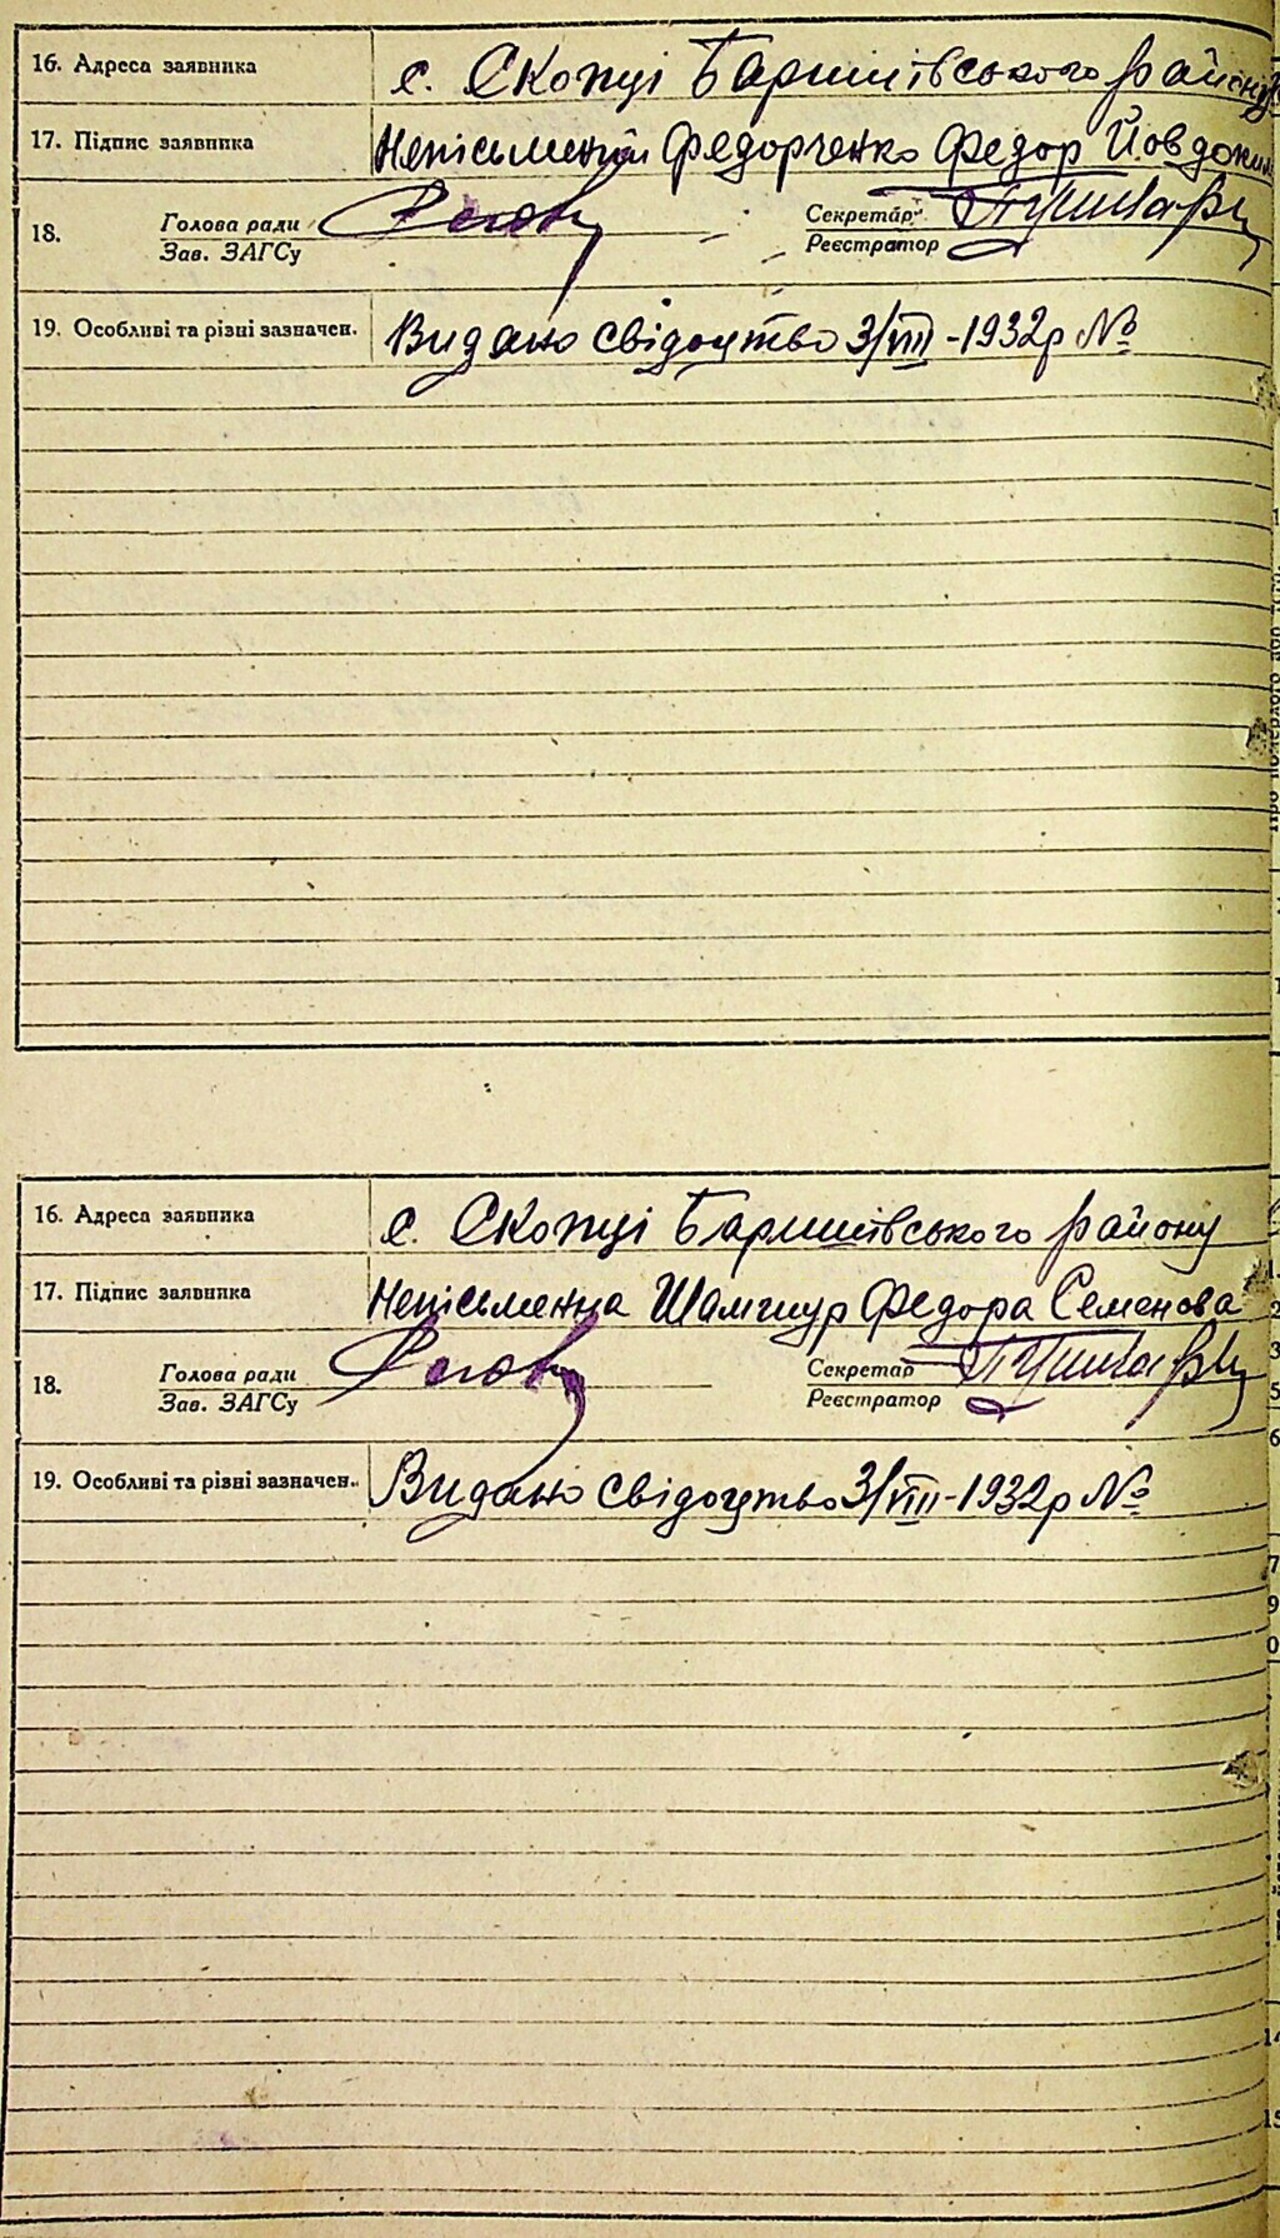 16. Адреса заявника с. Скопці Баришівського району
17. Підпис заявника Неписьменний Федорченко Федор Йовдоким
18. Голова ради Секретар
Зав. ЗАГСу Реєстратор
19. Особливі та різні зазначен. Видано свідоцтво 3/VIII-1932р №
16. Адреса заявника с. Скопці Баришівського району
17. Підпис заявника Неписьменна Шамшур Федора Семенова
18. Голова ради Секретар
Зав. ЗАГСу Реєстратор
19. Особливі та різні зазначен. Видано свідоцтво 3/VIII-1932р №